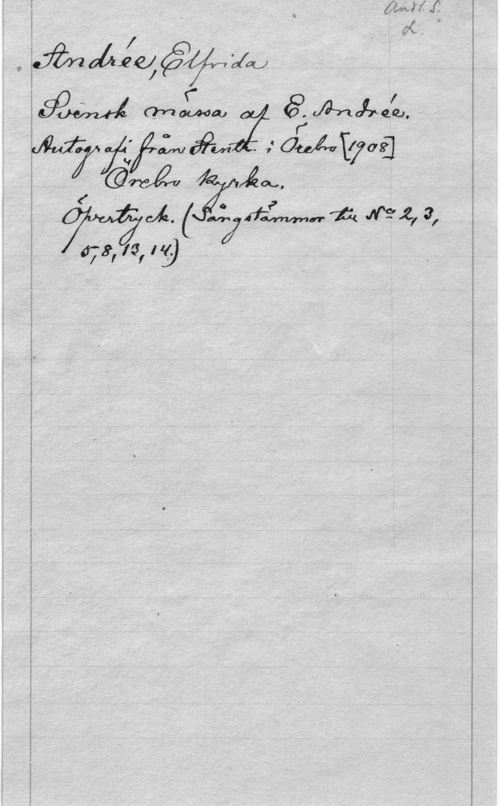 Andr. S.
d.
Andrée, Elfrida
Svensk mässa af E. Andrée.
Autografi från Sentr. i Örebro [1908]
Örebro kyrka.
Öfvertryck. (Sångstämmor till Nº 2, 3,
5, 8, 13, 14.)